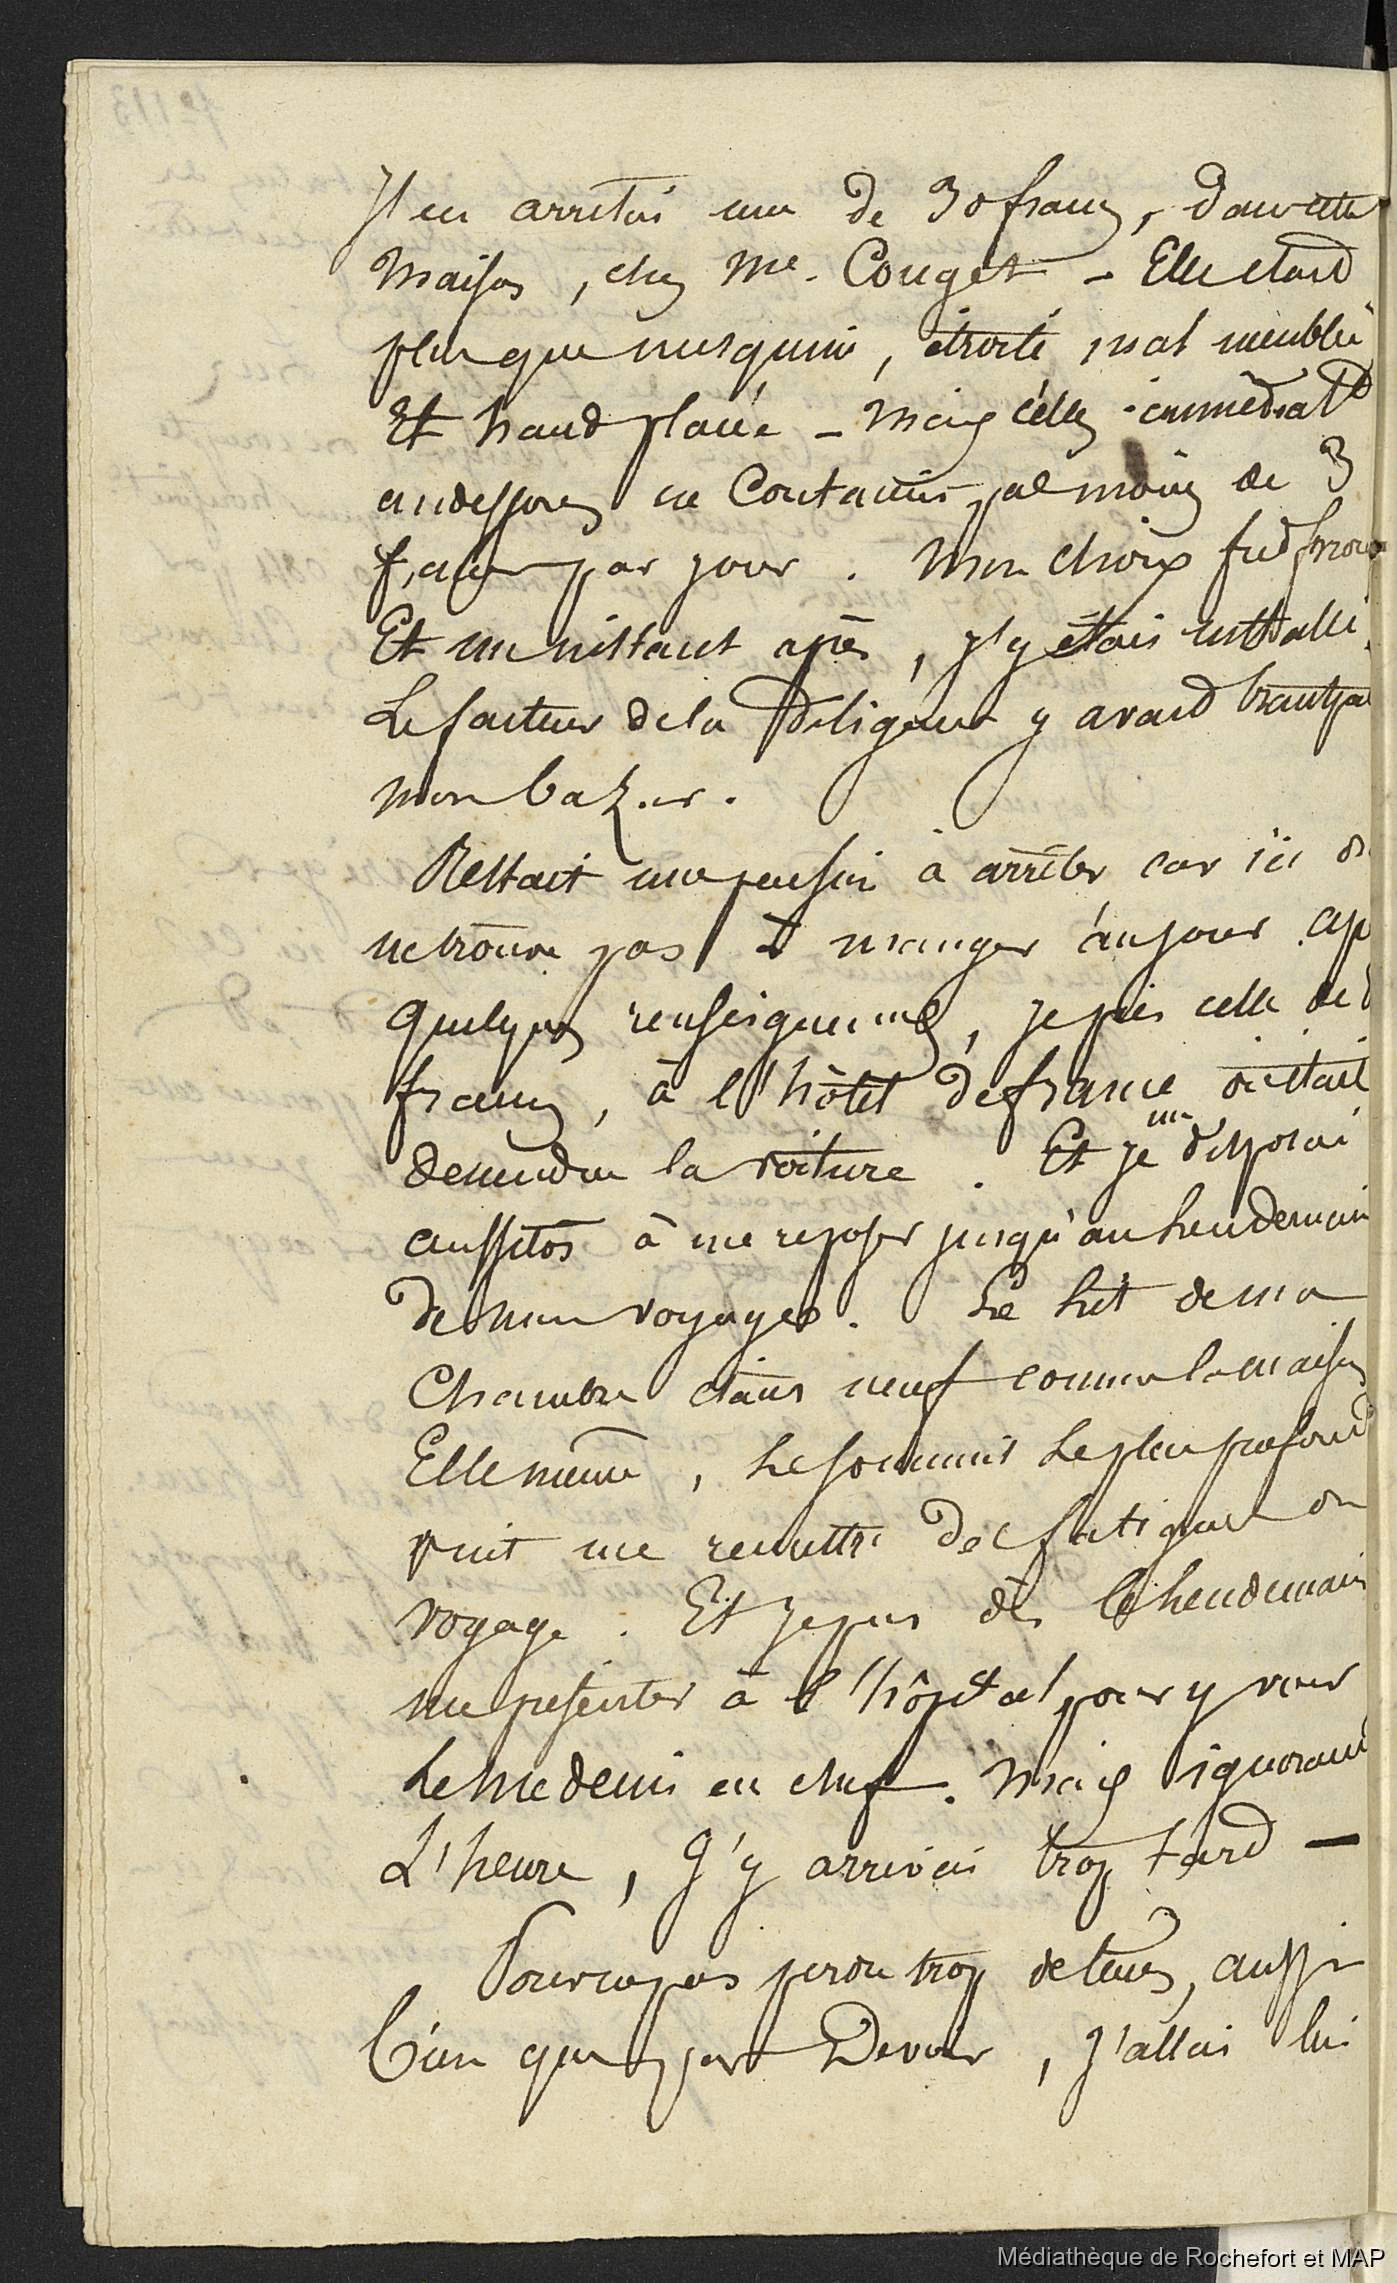 J'en arrêtai une de 30 francs, dans cette
maison, chez Me. Couget - Elle était
plus que mesquine, étroite, mal meublée
Et haud placée - mais celles immédiatt
audessous ne Coutaient pas moins de 3
francs par jour. Mon choix fut
Et un instant après, j'y étais installé.
Le facteur de la Diligence y avait
mon bazar.
Restait une pension à arrêter car ici on
ne trouve pas à manger au jour. Ap
quelques renseignemens, je pris celle de
francs, à l'hôtel de france où était
descendue la voiture. Et je me disposai
aussitôt à me reposer jusqu'au lendemain
de mon voyage. Le lit de ma
Chambre étant neuf comme la maison
Elle même, le sommeil le plus profond
vint me remettre des fatigues du
voyage. Et je pus dès le lendemain
me présenter à l'hôpital pour y voir
Le médecin en chef. Mais ignorant
L'heure, J'y arrivai trop tard -
Pour ne pas perdre trop de tems, aussi
bien que par Devoir, J'allai lui
Médiathèque de Rochefort et MAP